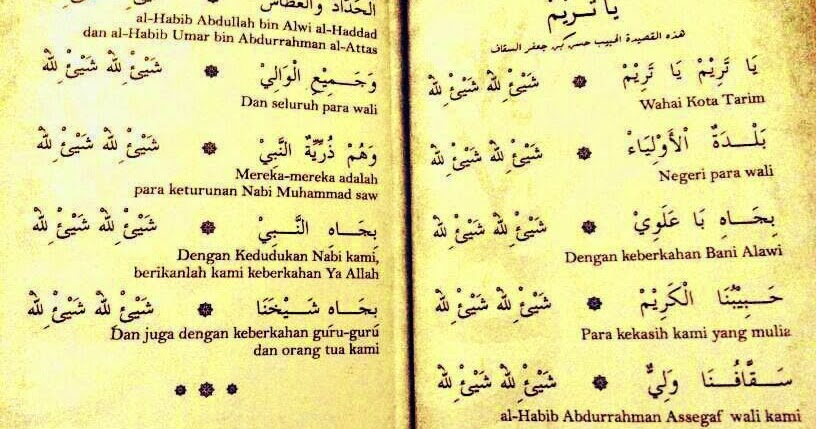 يَا تَرِيْمْ
هذه القصيدة الحبيب حسن بن جعفر السقاف
يَا تَرِيْمْ يَا تَرِيْمْ ۞ شَيْئْ لِلّٰهْ شَيْئْ لِلّٰهْ
Wahai Kota Tarim
بَلْـدَةٌ الْأَوْلِيَاءْ ۞ شَيْئْ لِلّٰهْ شَيْئْ لِلّٰهْ
Negeri para wali
بِجَاهِ بَا عَلَوِيْ ۞ شَيْئْ لِلّٰهْ شَيْئْ لِلّٰهْ
Dengan keberkahan Bani Alawi
حَـبِيْبُنَا الْكَرِيْمْ ۞ شَيْئْ لِلّٰهْ شَيْئْ لِلّٰهْ
Para kekasih kami yang mulia
سَـقَّافُـنَا وَلِيٌّ ۞ شَيْئْ لِلّٰهْ شَيْئْ لِلّٰهْ
al-Habib Abdurrahman Assegaf wali kami
الْحَدَّادْ وَالْعَطَّاسْ
al-Habib Abdullah bin Alwi al-Haddad
dan al-Habib Umar bin Abdurrahman al-Attas
وَجَـمِيْعِ الْوَالِيْ ۞ شَيْئْ لِلّٰهْ شَيْئْ لِلّٰهْ
Dan seluruh para wali
وَهُمْ ذُرِّيَّةُ النَّبِيْ ۞ شَيْئْ لِلّٰهْ شَيْئْ لِلّٰهْ
Mereka-mereka adalah
para keturunan Nabi Muhammad saw
بِجَـاهِ النَّـبِيْ ۞ شَيْئْ لِلّٰهْ شَيْئْ لِلّٰهْ
Dengan Kedudukan Nabi kami,
berikanlah kami keberkahan Ya Allah
بِجَـاهِ شَـيْخَنَا ۞ شَيْئْ لِلّٰهْ شَيْئْ لِلّٰهْ
Dan juga dengan keberkahan guru-guru
dan orang tua kami